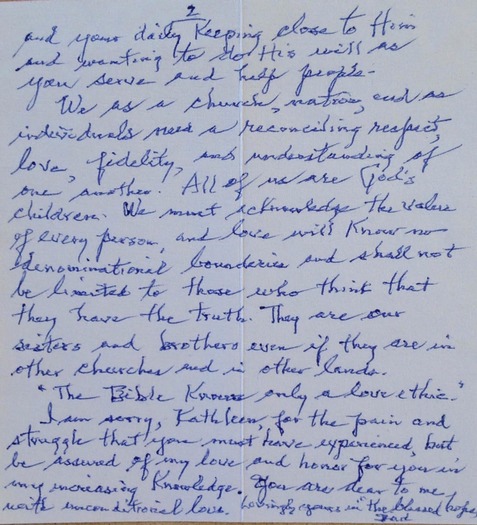 2
and your daily keeping close to Him
and wanting to do His will as
you serve and help people.
We as a church, nation, and as
individuals need a reconciling respect,
love, fidelity, and understanding of
one another. All of us are God's
children. We must acknowledge the value
of every person, and love will know no
denominational boundaries and shall not
be limited to those who think that
they have the truth. They are our
sisters and brothers even if they are in
other churches and in other lands.
"The Bible Knows only a love ethic."
I am sorry, Kathleen, for the pain and
struggle that you must have experienced, but
be assured of my love and honor for you in
my increasing Knowledge. You are dear to me,
with unconditional love. Lovingly, yours in the blessed hope,
Dad